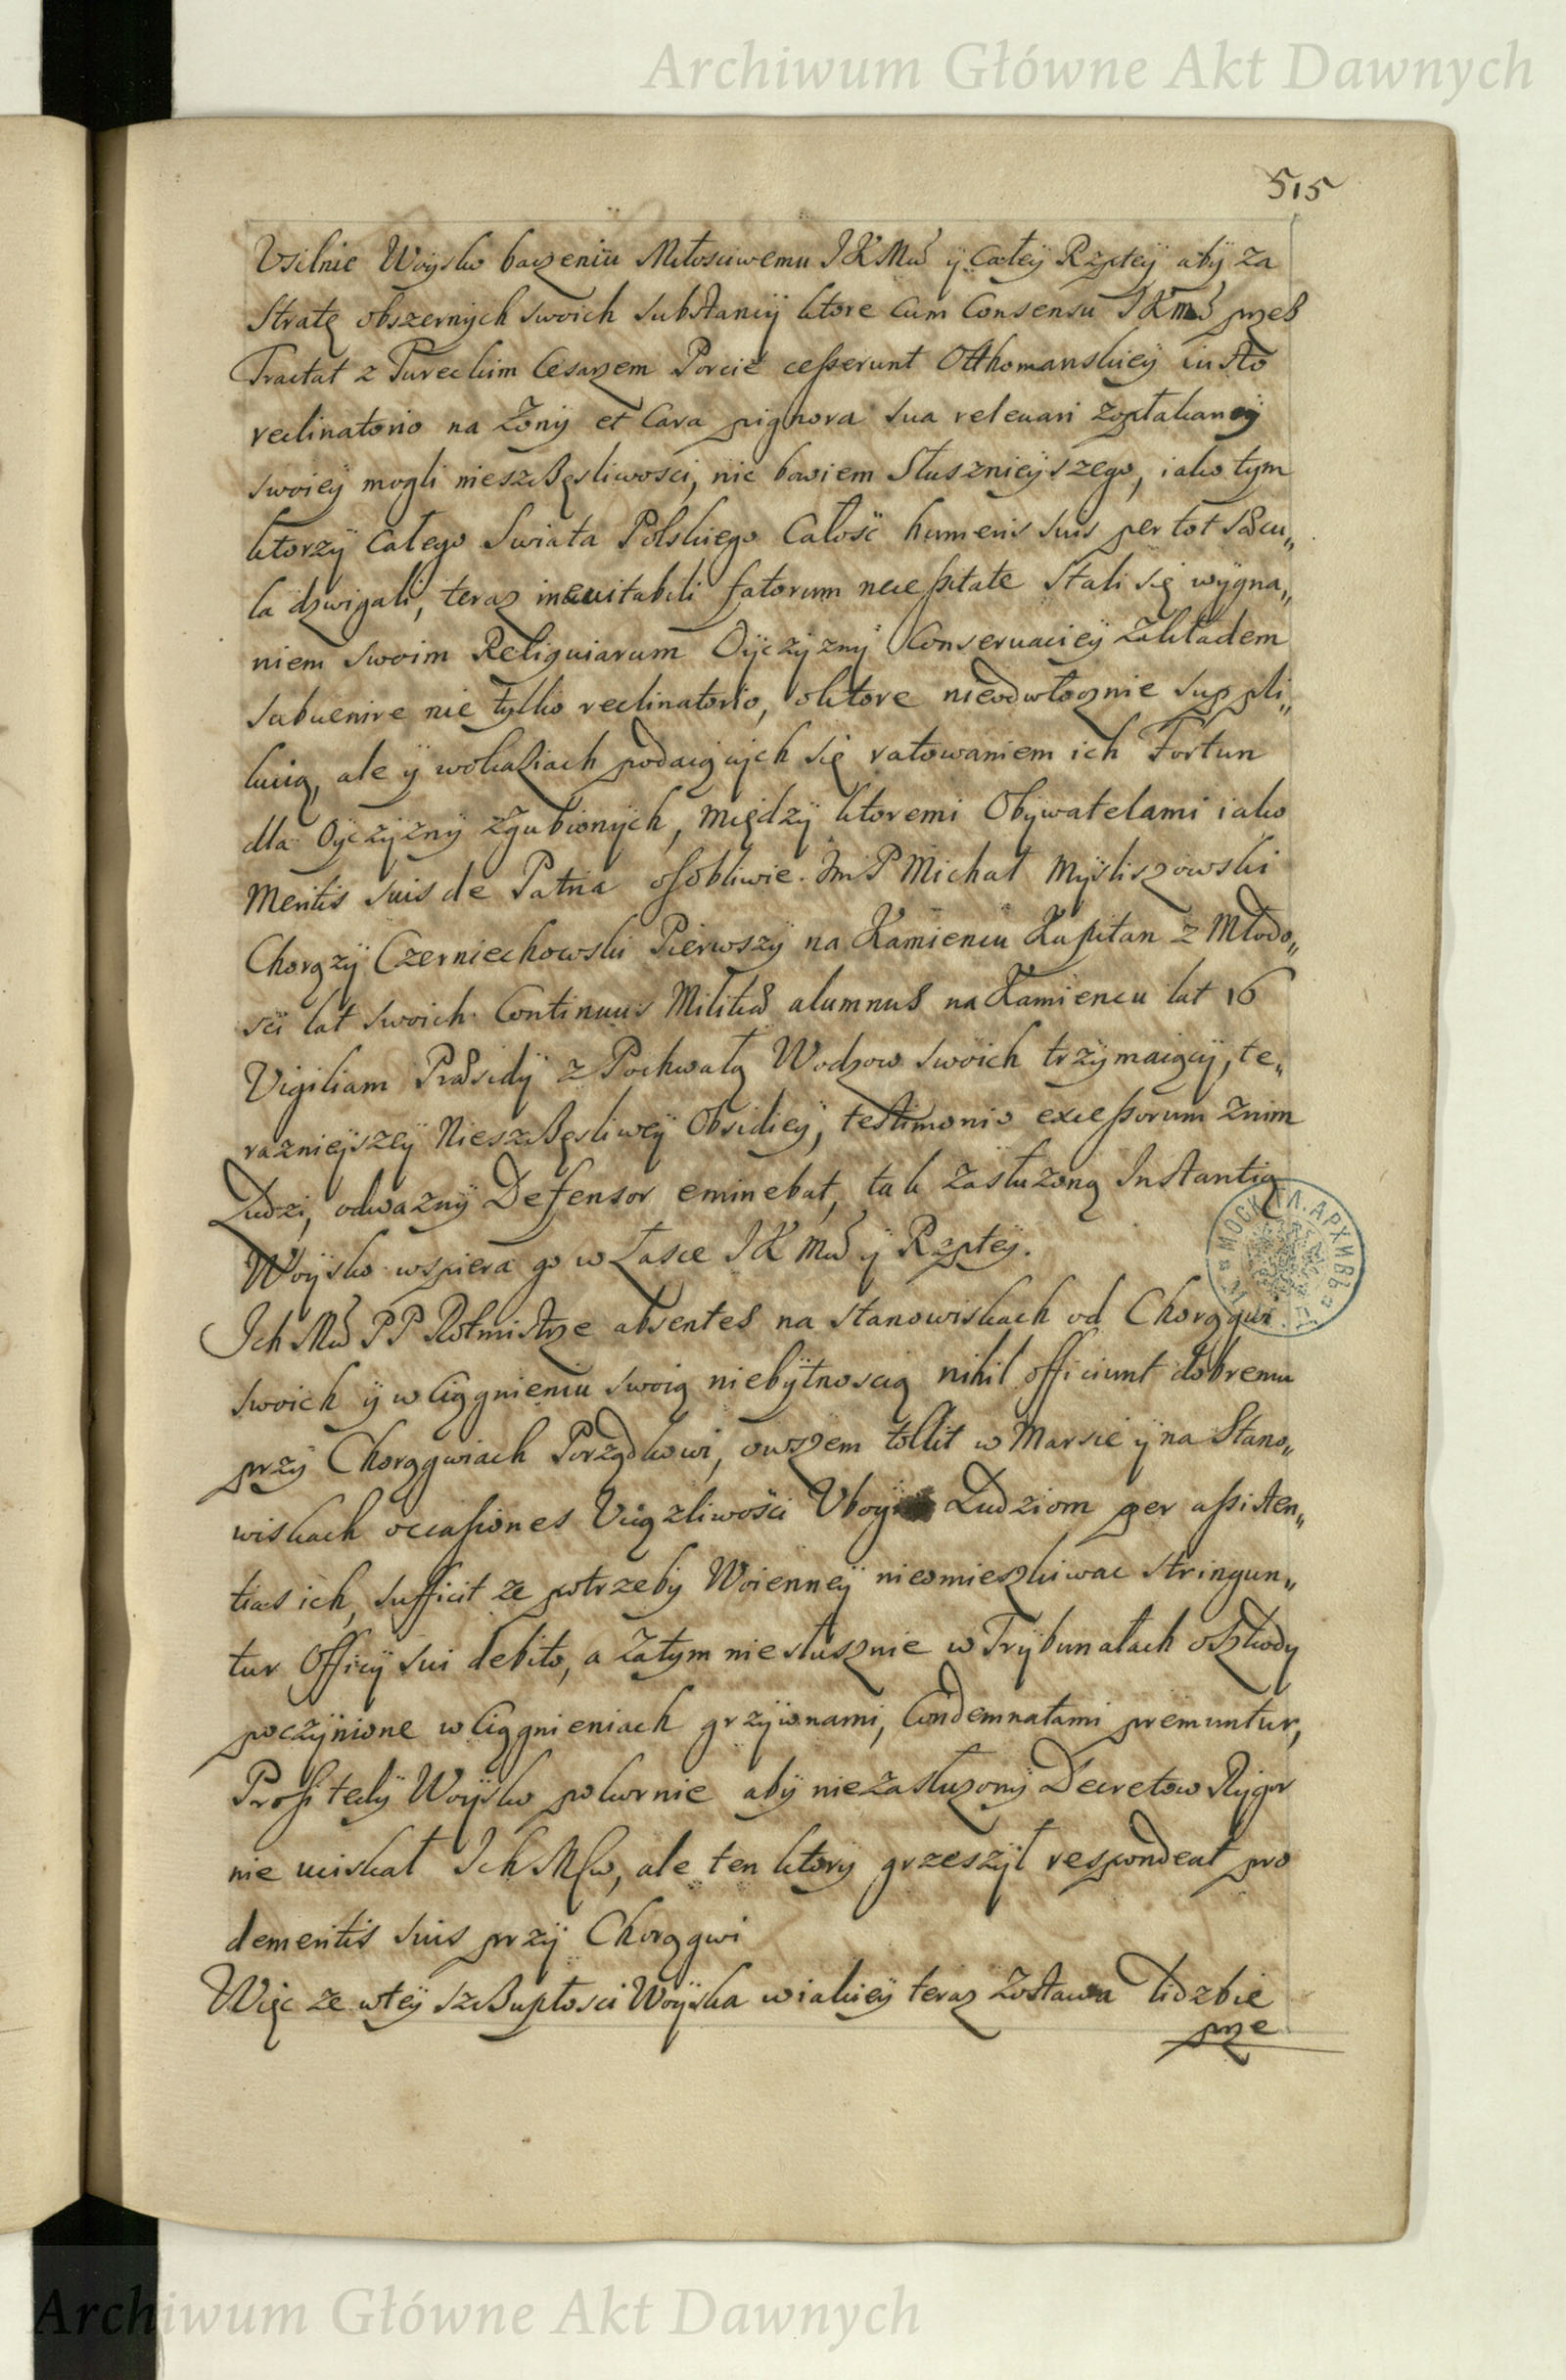 Archiwum Główne Akt Dawnych
515
Vsilnie Woysko baczeniu Miłosciwemu JKMci ÿ Całeÿ Rzpteÿ abÿ za
Stratę obszernÿch swoich substanciÿ ktore cum Consensu JKmci przes
Tractat z Tureckim Cesarzem Porcie cesserunt Otthomanskieÿ iusto
reclinatorio na Zonÿ et Cara pignora sua releuari zopłakaneÿ
swoieÿ mogli nieszczęsliwosci, nic bowiem Słusznieÿszego, iako tym
ktorzÿ całego Swiata Polskiego Całosć humeris suis per tot sæcu„
la dzwigali, teraz ineuitabili fatorum necessitate Stali się wÿgna„
niem swoim Reliquiarum Oÿczÿznÿ Conseruacieÿ Zakładem
subuenire nie tylko reclinatorio, oktore nieodwłocznie suppli„
kuią, ale ÿ wokaziach podaiącÿch się ratowaniem ich Fortun
dla Oÿczÿznÿ zgubionÿch, międzÿ ktoremi Obÿwatelami iako
Meritis suis de Patria osobliwie Im P Michał Mÿsliszowski
Chorązÿ Czerniechowski Pierwszÿ na Kamiencu Kapitan z Młodo„
sci lat swoich Continuus Militiæ alumnus na Kamiencu lat 16
Vigiliam Præsidÿ z Pochwałą Wodzow swoich trzÿmaiącÿ, te„
raznieÿszeÿ Nieszczęsliweÿ Obsidieÿ, testimonio excessorum znim
Ludzi, odwaznÿ Defensor eminebat, tak zasłuzoną Instantią
Woÿsko wspiera go w Łasce JK Mci ÿ Rzpteÿ.
Ich Mć PP Rotmistrze absentes na stanowiskach od Chorągwi
swoich ÿ w Ciągnieniu swoią niebÿtnoscią nihil officiunt dobremu
przÿ Chorągwiach Porządkowi, owszem tollit w Marsie ÿ na Stano„
wiskach occasiones Vciązliwości Vbogi Ludziom per assisten„
tias ich, sufficit ze potrzebÿ Woienneÿ nieomieszkiwac stringun„
tur Officÿ sui debito, a zatym niesłusznie w Trÿbunałach oszkody
poczÿnione w Ciągnieniach grzÿwnami, Condemnatami premuntur,
Prosi tedÿ Woÿsko pokornie abÿ niezasłuzonÿ Decretow Rÿgor
nie uciskał Ich Mсiow, ale ten ktorÿ grzeszÿł respondeat pro
demeritis suis przÿ Chorągwi
Więc ze wteÿ szczupłosci Woÿska wiakieÿ teraz zostawa Lidzbie
prze
Archiwum Główne Akt Dawnych